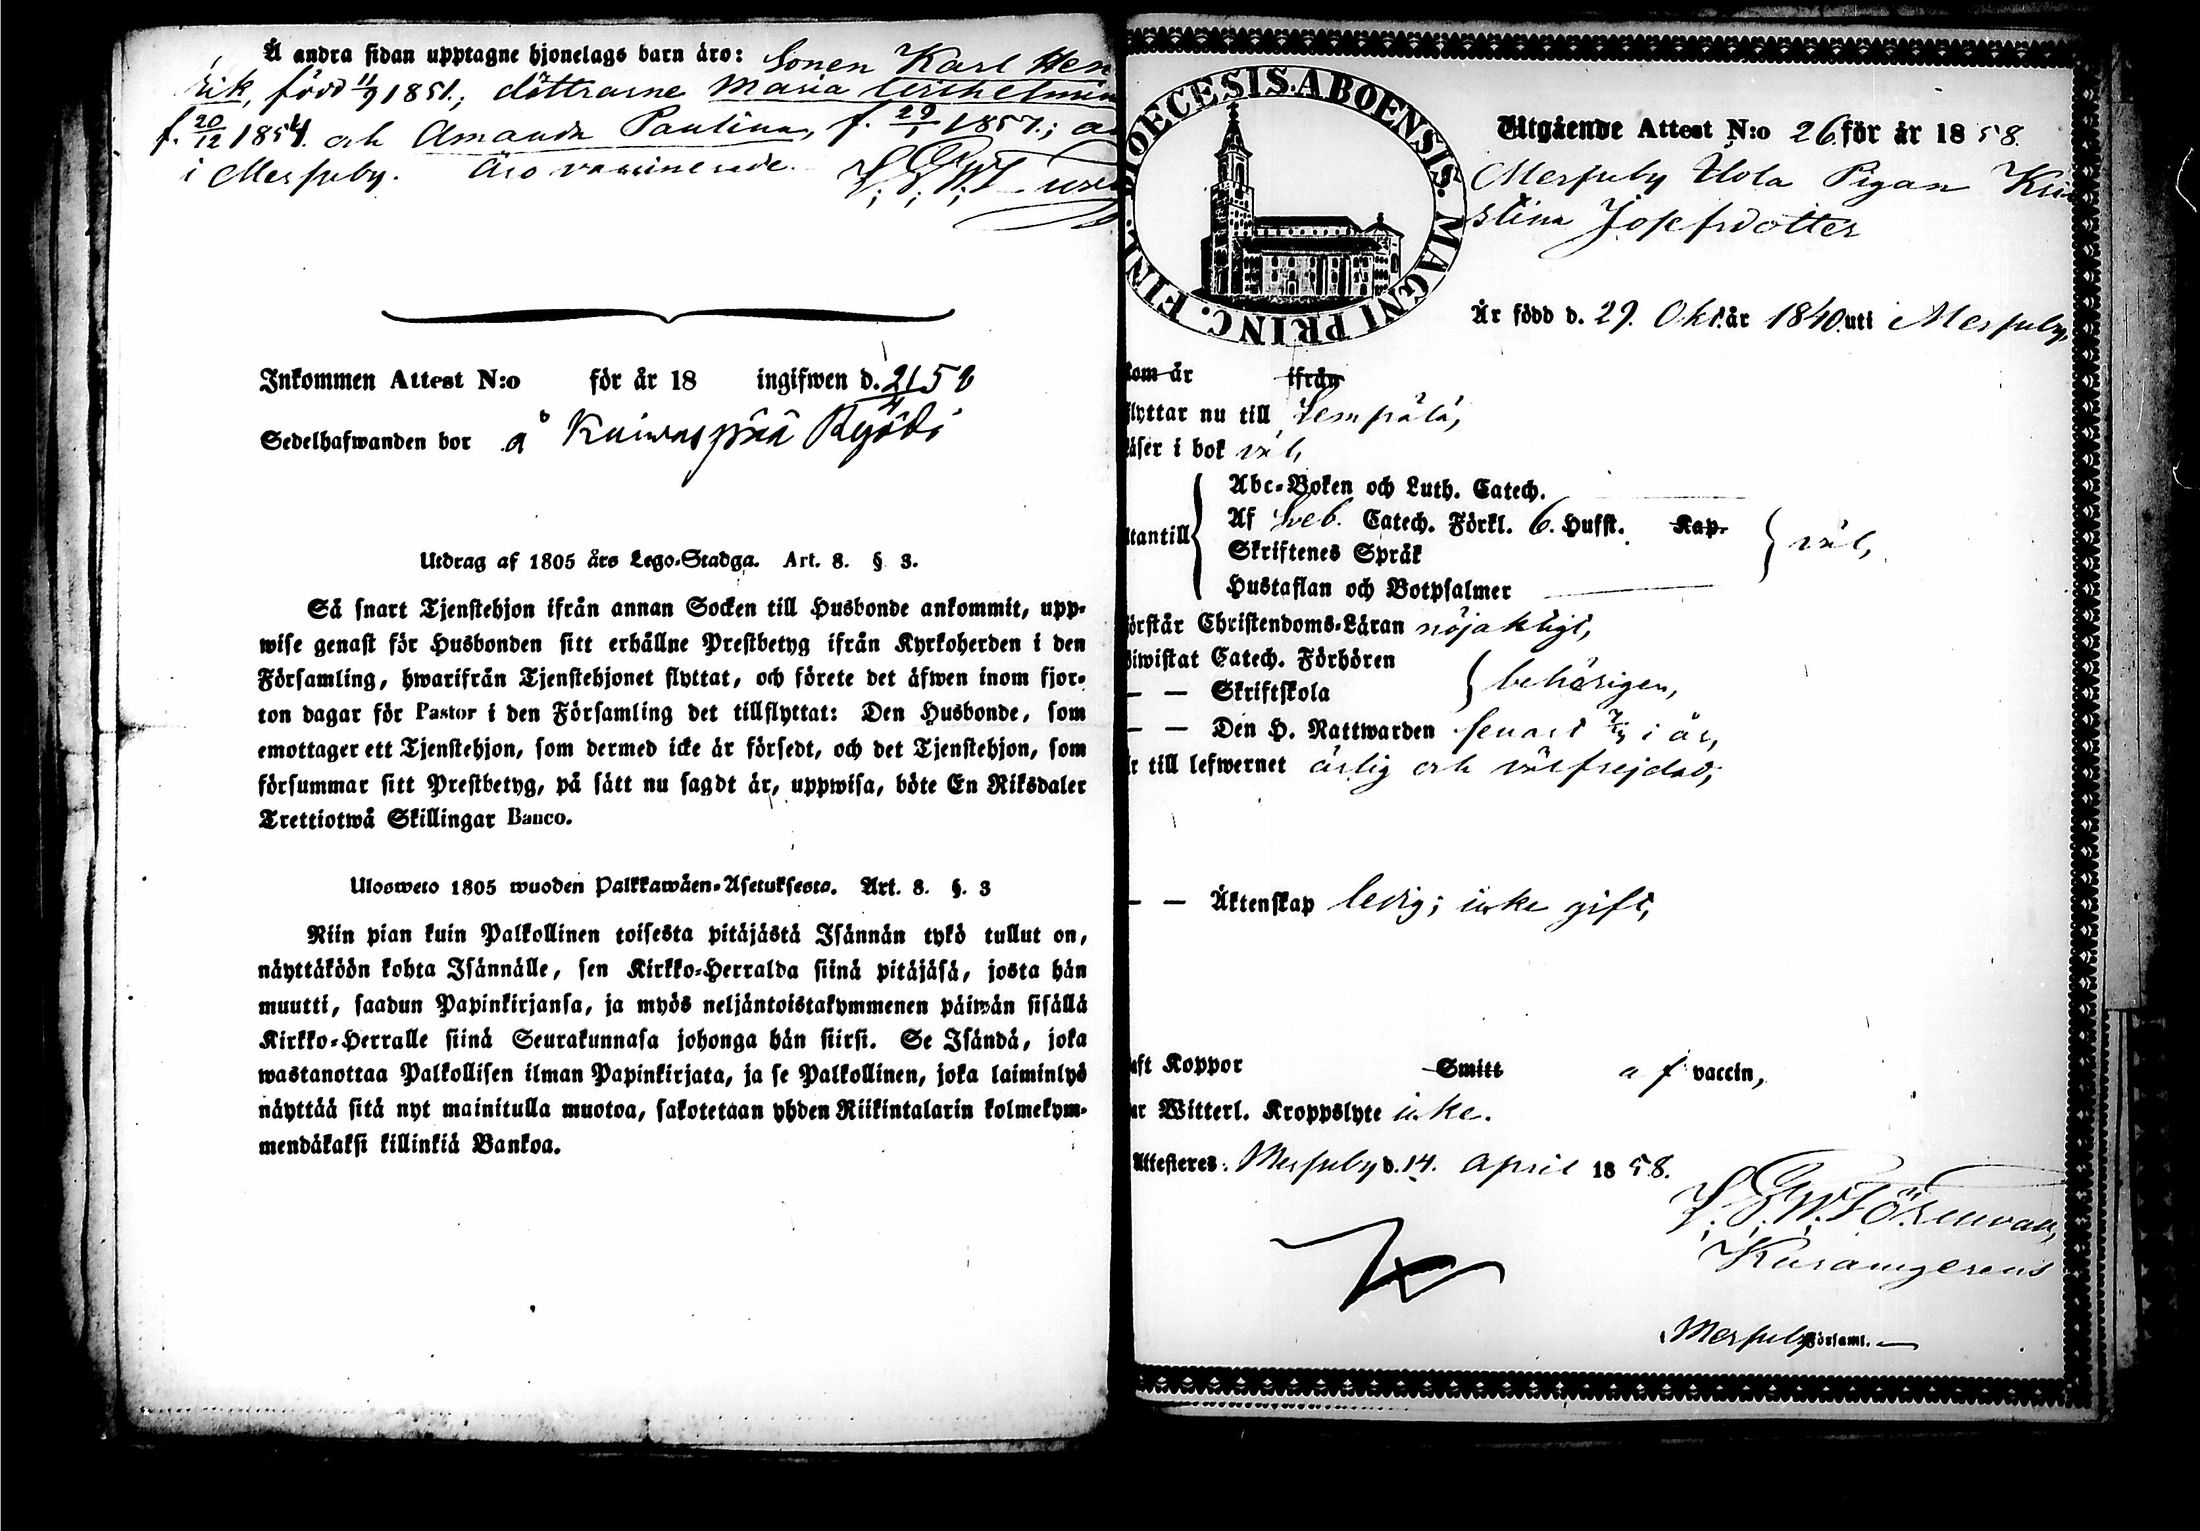 Å andra sidan upptagne hjonelags barn äro: Sonen Karl Hen
rik, född 11/9 1851.; döttrarne Maria Wilhelmina
f. 20/12 1854. och Amanda Paulina, f. 29/1 1857.;
i Merfuby. Äro vaccinerade.
Inkommen Attest N:o för år 18 ingifwen d. 21/4 58
Sedelhafwanden bor å Kuiwaspää Ryödi
Utdrag af 1805 års Lego-Stadga. Art. 8. § 3.
Så snart Tjenstehjon ifrån annan Socken till Husbonde ankommit, upp-
wise genast för Husbonden sitt erhållne Prestbetyg ifrån Kyrkoherden i den
Församling, hwarifrån Tjenstehjonet flyttat, och förete det äfwen inom fjor-
ton dagar för Pastor i den Församling det tillflyttat: Den Husbonde, som
emottager ett Tjenstehjon, som dermed icke är försedt, och det Tjenstehjon, som
försummar sitt Prestbetyg, på sätt nu sagdt är, uppwisa, böte En Riksdaler
Trettiotwå Skillingar Banco.
Ulosweto 1805 wuoden Palkkawäen-Asetuksesta. Art. 8. §. 3
Niin pian kuin Palkollinen toisesta pitäjästä Isännän tykö tullut on,
näyttäköön kohta Isännälle, sen Kirkko-Herralda siinä pitäjäsä, josta hän
muutti, saadun Papinkirjansa, ja myös neljäntoistakymmenen päiwän sisällä
Kirkko-Herralle siinä Seurakunnasa johonga hän siirsi. Se Isändä, joka
wastanottaa Palkollisen ilman Papinkirjata, ja se Palkollinen, joka laiminlyö
näyttää sitä nyt mainitulla muotoa, sakotetaan yhden Riikintalarin kolmekym-
mendäkaksi killinkiä Bankoa.
DIOECESIS ABOENSIS. MAGNI PRINC. FINL.
Utgående Attest N:o 26 för år 1858.
Merfuby Ylola Pigan Kri
stina Josefsdotter
Är född d. 29. Okt. år 1840. uti Merfuby,
kom är ifrån
flyttar nu till Lempälä,
läser i bok väl,
Abc-Boken och Luth. Catech.
utantill Af Sveb. Catech. Förkl. 6. Hufst. Kap. väl,
Skriftenes Språk
Hustaflan och Botpsalmer
förstår Christendoms-Läran nöjaktigt,
biwistat Catech. Förhören
— — Skriftskola behörigen,
— — Den H. Nattwarden senast i år,
är till lefwernet ärlig och välfrejdad;
— — Äktenskap ledig; icke gift,
haft Koppor Smitt af vaccin,
har Witterl. Kroppslyte icke.
Attesteres: Merfuby d. 14. April 1858.
Merfuby Församl.